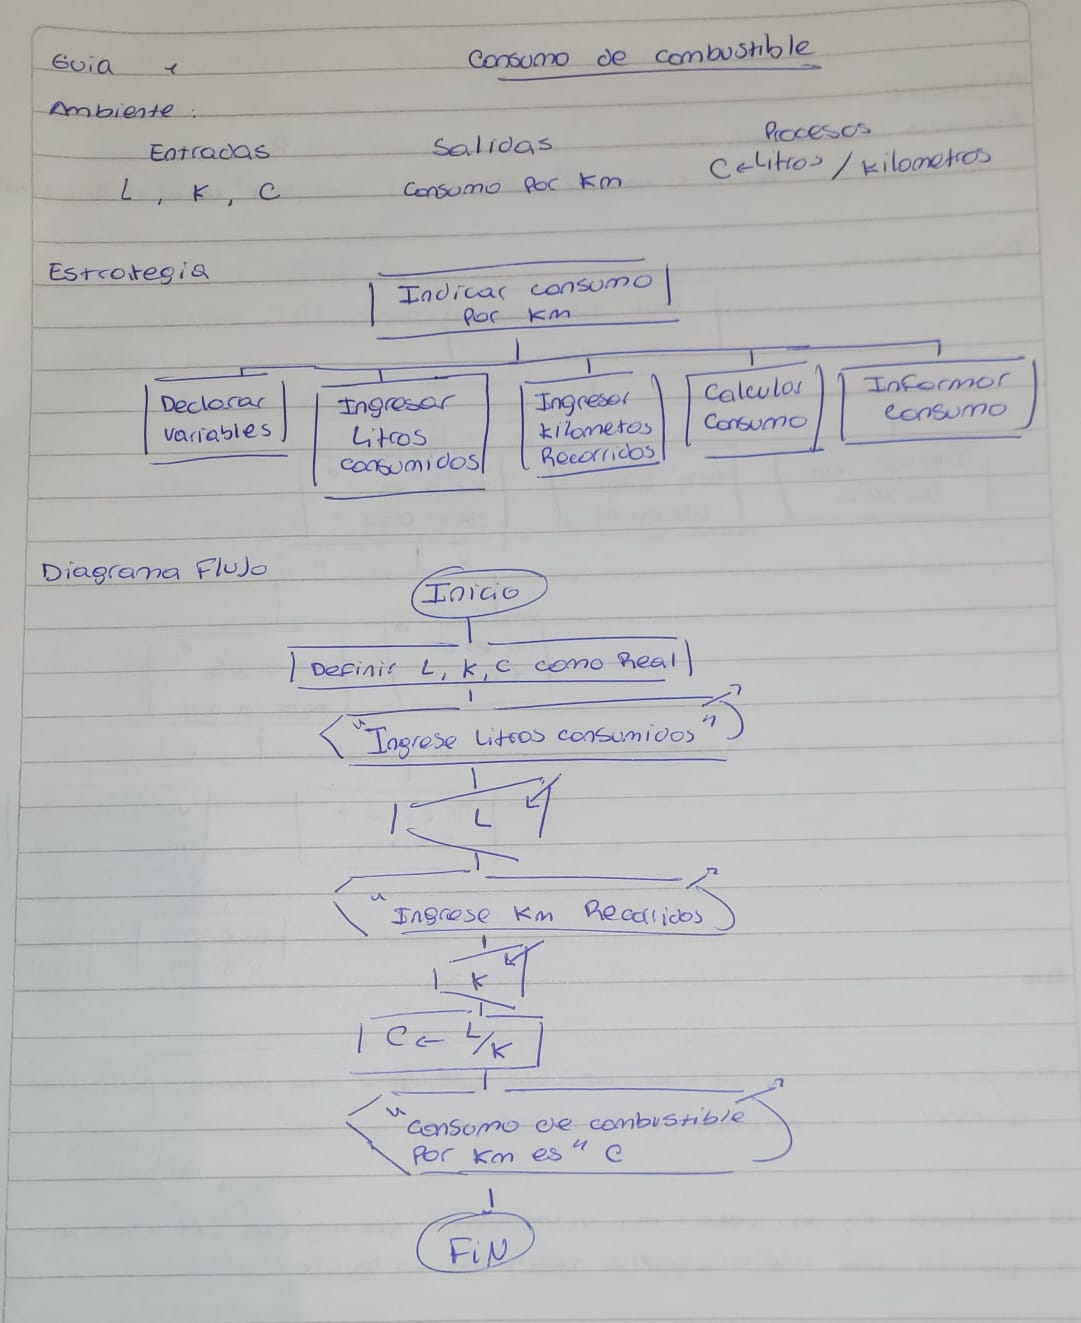 Guia 1
Consumo de combustible
Ambiente:
Entradas Salidas Procesos
L, K, C Consumo Por Km C←Litros / kilometros
Estrategia
Indicar consumo
Por Km
Declarar
variables
Ingresar
Litros
consumidos
Ingresar
kilometros
Recorridos
Calcular
Consumo
Informar
consumo
Diagrama Flujo
Inicio
Definir L, K, C como Real
"Ingrese Litros consumidos"
L
"Ingrese Km Recorridos
K
C← L/K
"Consumo de combustible
Por Km es" C
FiN